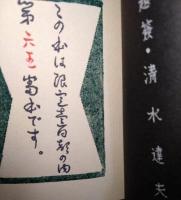 清水達夫
この本は限定壱百部の内
第六五番本です。